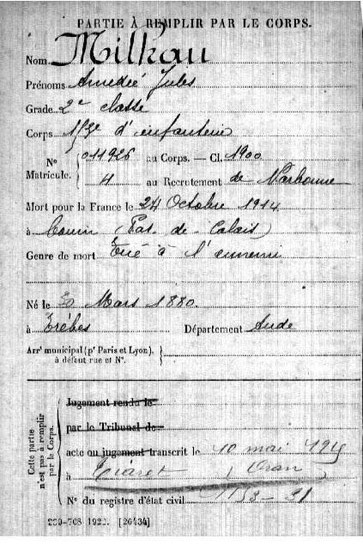 PARTIE À REMPLIR PAR LE CORPS.
Nom Milhau
Prénoms Amedée Jules
Grade 2e classe
Corps d'infanterie
No 011926 au Corps. — Cl. 1900
Matricule. 4 au Recrutement de Narbonne
Mort pour la France le 24 Octobre 1914
à (Pas-de-Calais)
Genre de mort Tué à l'ennemi
Né le Mars 1880.
à Trèbes Département Aude
Arrt municipal (pr Paris et Lyon),
à défaut rue et No.
Cette partie
n'est pas à remplir
par le Corps.
Jugement rendu le
par le Tribunal de
acte ou jugement transcrit le 10 mai 1915
à Tiaret (Oran)
No du registre d'état civil
[26434]